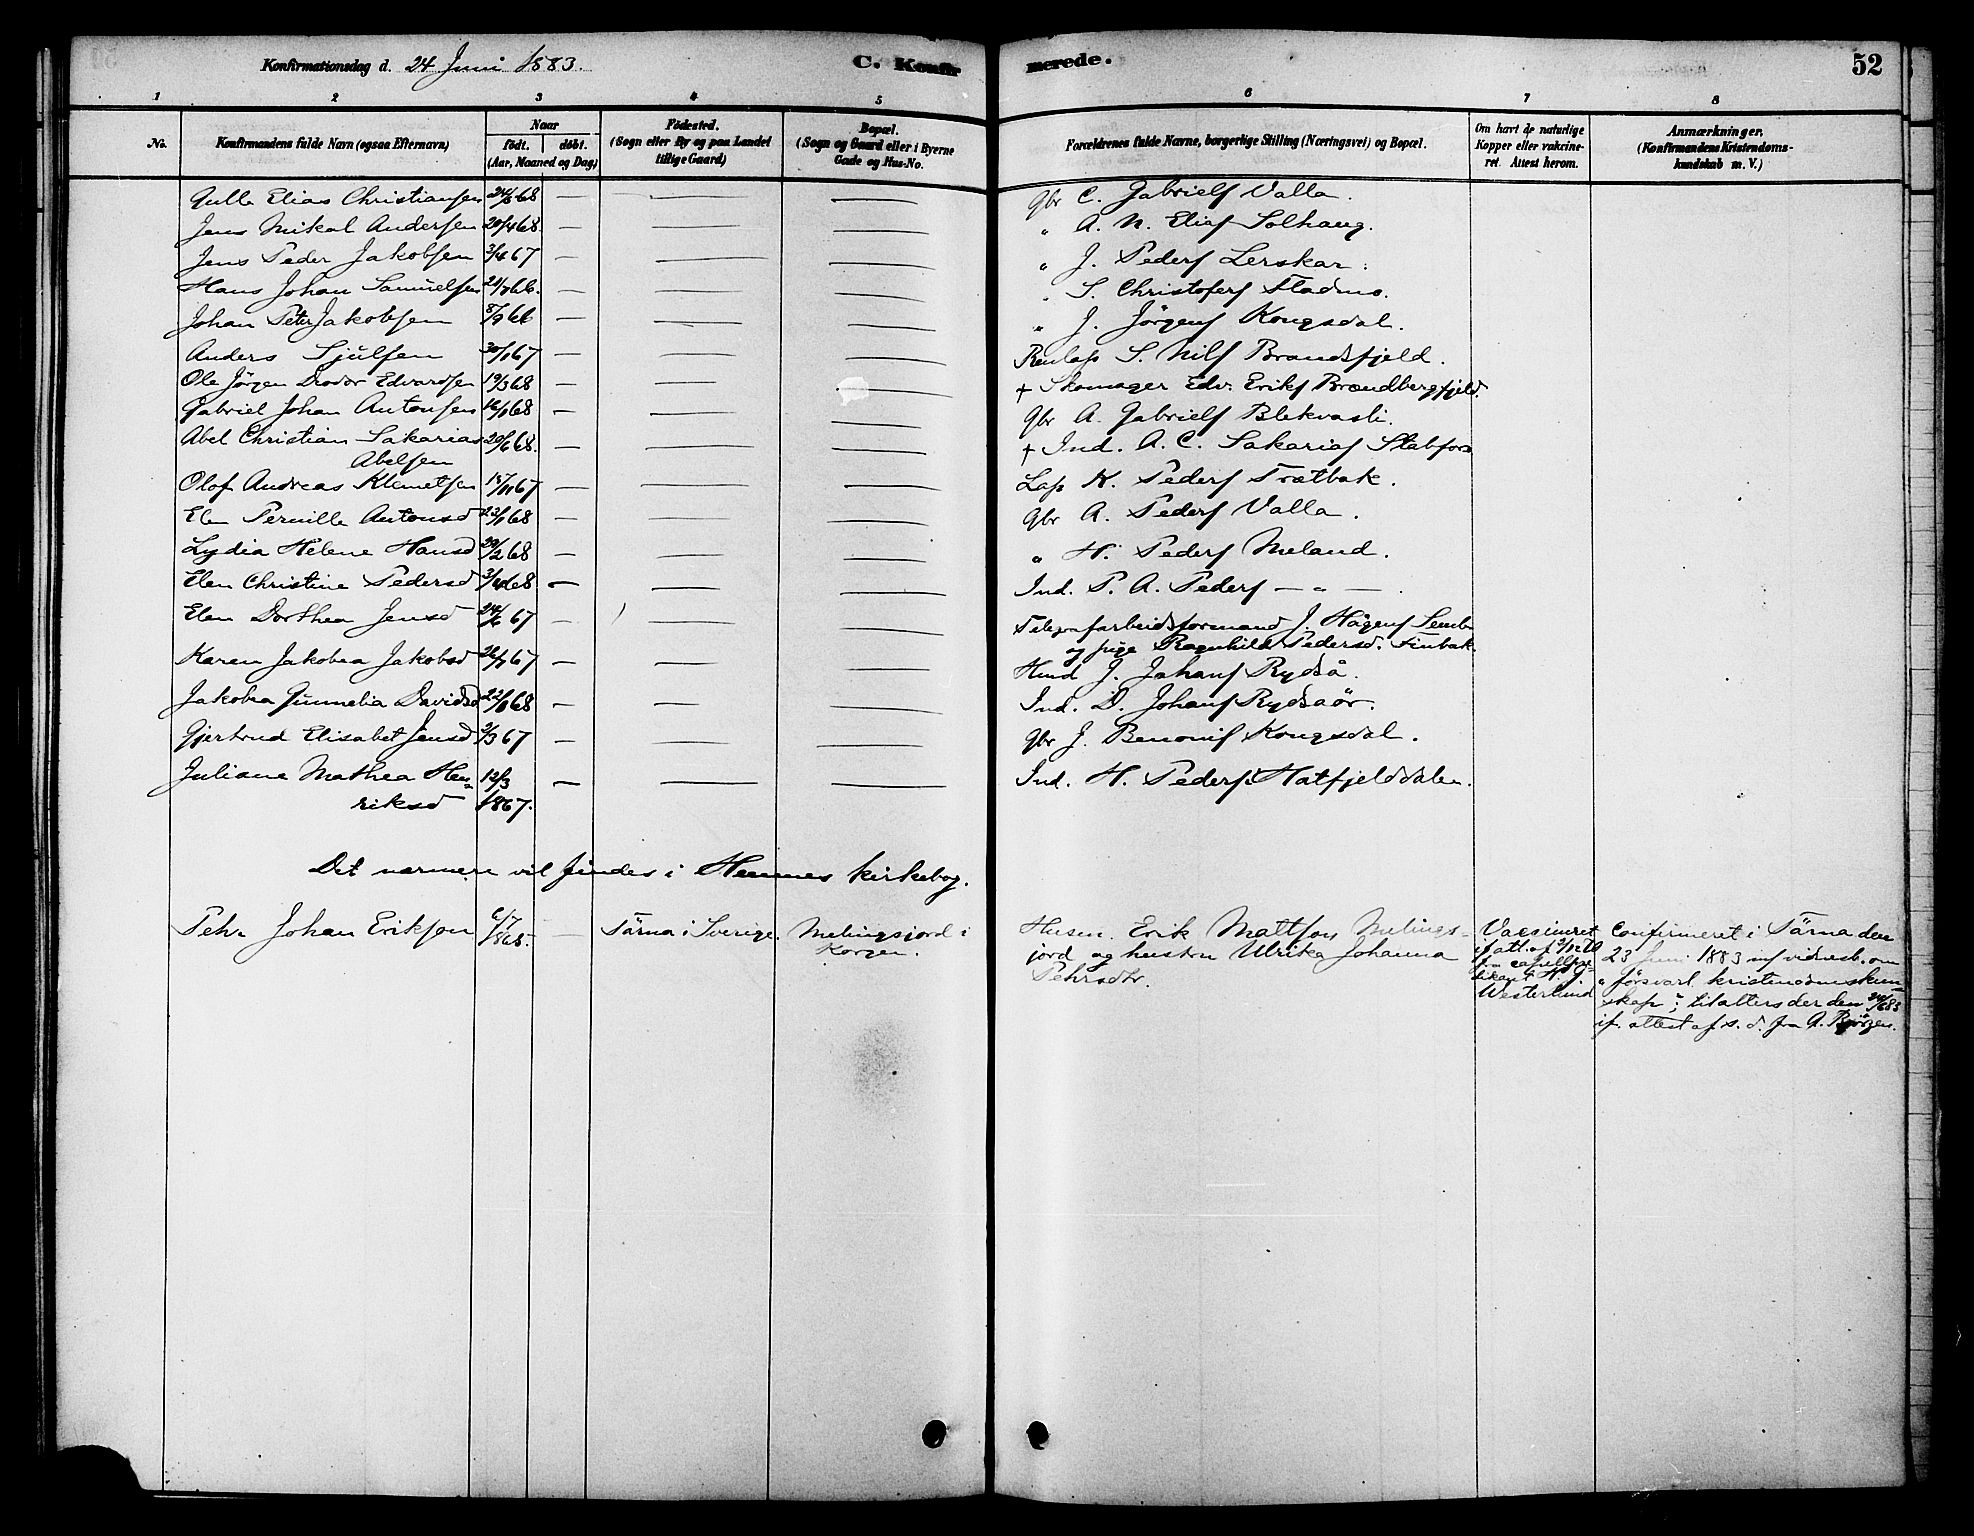 Konfirmationsdag d. 24 Juni 1883.
C. Konfir
merede.
52
1 2 3 4 5 6 7 8
No.
Konfirmandens fulde Navn (ogsaa Efternavn)
Naar
født. døbt.
(Aar, Maaned og Dag)
Fødested.
(Sogn eller By og paa Landet
tillige Gaard)
Bopæl.
(Sogn og Gaard eller i Byerne
Gade og Hus-No.
Forældrenes fulde Navne, borgerlige Stilling (Næringsvei) og Bopæl.
Om havt de naturlige
Kopper eller vakcine-
ret. Attest herom.
Anmærkninger.
(Konfirmandens Kristendoms-
kundskab m. V.)
Elias Christiansen 68 — — — Gbr C. Gabriels Valla.
Jens Mikal Andersen 20/4 68. — — — " A. N. Elias Solhaug.
Jens Peder Jakobsen 3/4 67 — — — " J. Peders Lerskar.
Hans Johan Samuelsen — — — " S. Christofers Stadmo.
Johan Peter Jakobsen 8/9 66 — — — " J. Jörgens Kongsdal.
Anders Sjulsen 30/1 67 — — — Renlap S. Nils Brandsfjeld.
Ole Jörgen Edvardsen 19/3 68 — — — + Skomager Edv. Eriks Brændbergfjeld.
Gabriel Johan Antonsen 16/1 68 — — — Gbr A. Gabriels Blekvasli.
Abel Christian Sakarias 20/6 68. — — — + Ind. A. C. Sakarias Stabfors
Abelsen
Olof Andreas Klemetsen 67 — — — Lap K. Peders Tretbak.
Elen Pernille Antonsd 68 — — — Gbr A. Peders Valla.
Lydia Helene Hansd 29/2 68 — — — " H. Peders Meland.
Elen Christine Pedersd 3/4 68 — — — Ind. P. A. Peders — " —
Elen Dorthea Jensd 24/6 67 — — Telegrafarbeidsformand J. Hågens
og pige Ragnhild Pedersd. Finbak
Karen Jakobea Jakobsd 26/7 67 — — — Husmd J. Johans Rydså.
Jakobea Gunnelia Davidsd 22/1 68 — — — Ind. D. Johans Rydsaör.
Gjertrud Elisabet Jensd 2/3 67 — — — Gbr J. Benonis Kongsdal.
Juliane Mathea Hen- 12/3 — — — Ind. H. Peders Hatfjelddalen.
riksd 1867.
Det nærmere vil findes i Hemnes kirkebog.
Pehr Johan Erikson 6/7 — Tärna i Sverige. Melingsjord i
1868. Korgen.
Husm. Erik Mattson Melings-
jord og hustru Ulrika Johanna
Pehrsdtr.
Vaccineret
if att. af
fra
H. J.
Westerlund
Confirmeret i Tärna den
23 Juni 1883 m/ vidnesb. om
" försvarl. kristendomskun-
skap"; tilalters der den 24/6 83
if. attest af s. d. fra A. Björzen.